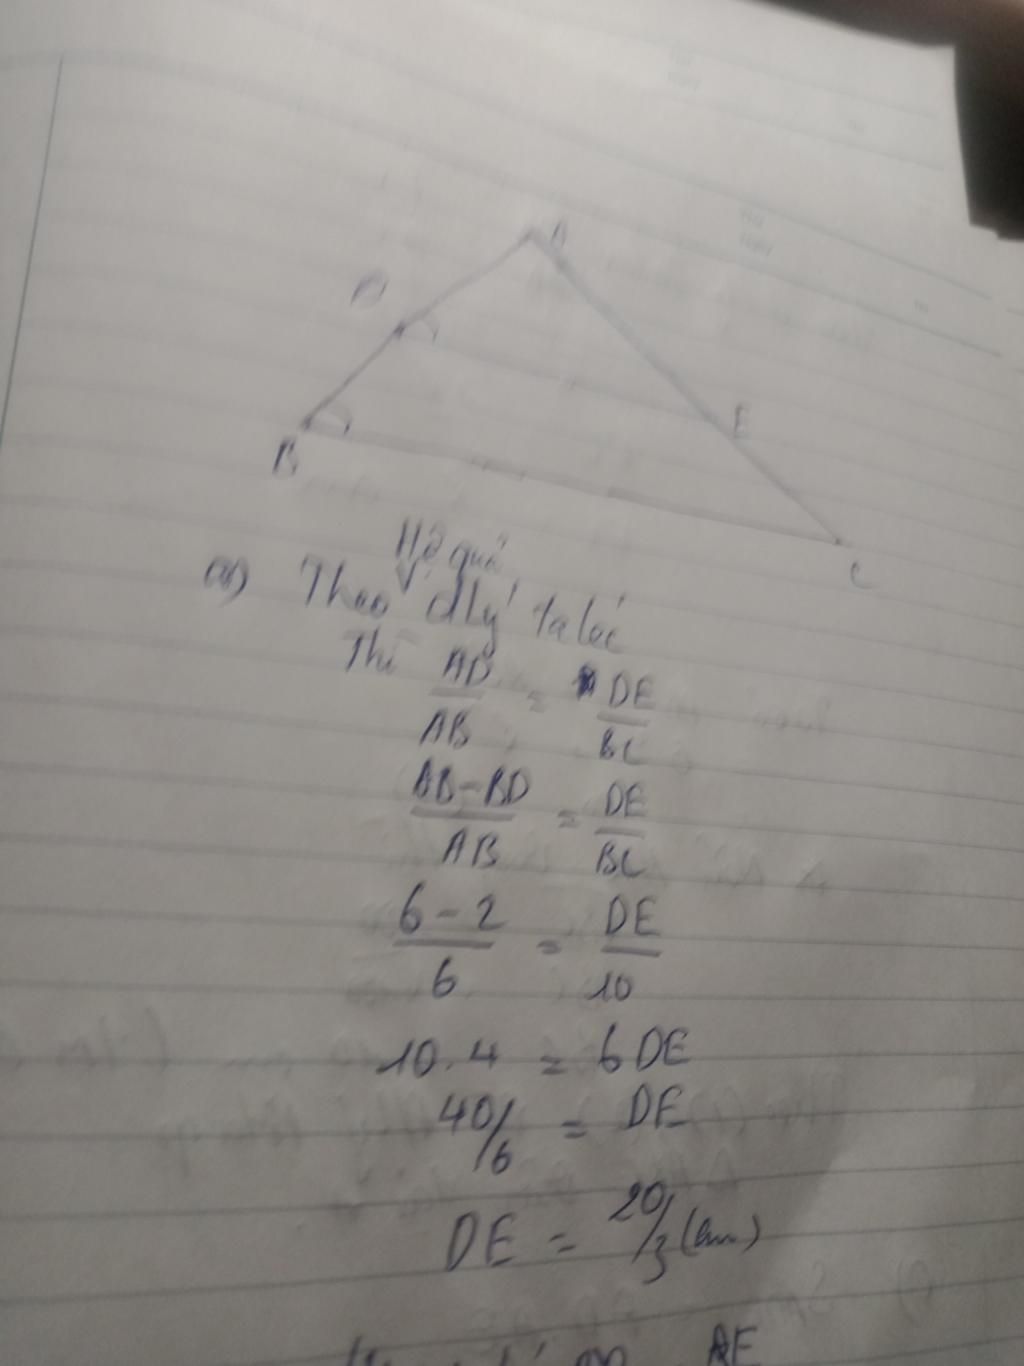 A
D
E
B
C
Hệ quả
a) Theo đlý talét
Thì AD/AB = DE/BC
AB-BD/AB = DE/BC
6-2/6 = DE/10
10.4 = 6DE
40/6 = DE
DE = 20/3 (cm)
AE